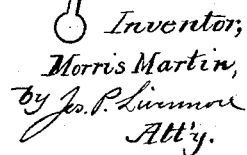 Inventor,
Morris Martin,
by Jos. P. Livermore
Att'y.